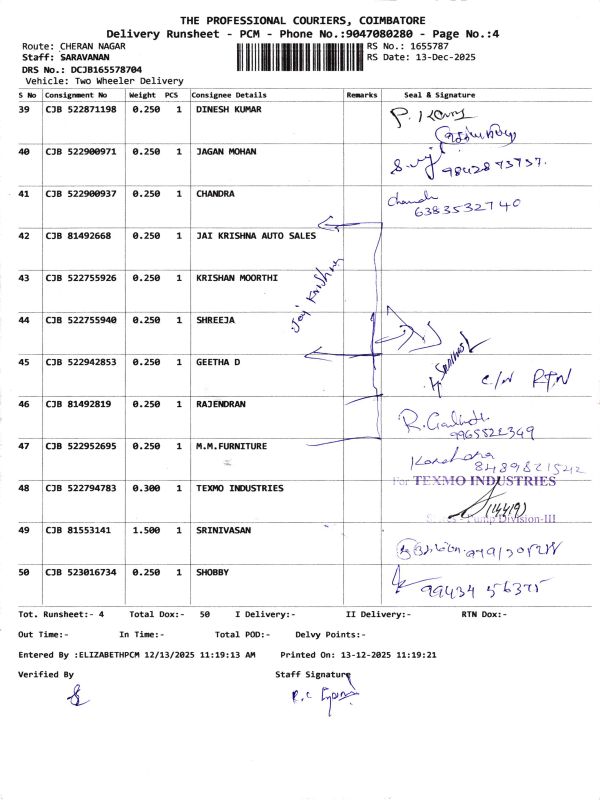 THE PROFESSIONAL COURIERS, COIMBATORE
Delivery Runsheet - PCM - Phone No.:9047080280 - Page No.:4
Route: CHERAN NAGAR RS No.: 1655787
Staff: SARAVANAN RS Date: 13-Dec-2025
DRS No.: DCJB165578704
Vehicle: Two Wheeler Delivery
S No Consignment No Weight PCS Consignee Details Remarks Seal & Signature
39 CJB 522871198 0.250 1 DINESH KUMAR
40 CJB 522900971 0.250 1 JAGAN MOHAN 9842873737.
41 CJB 522900937 0.250 1 CHANDRA
6383532740
42 CJB 81492668 0.250 1 JAI KRISHNA AUTO SALES
Jay Krishna
43 CJB 522755926 0.250 1 KRISHAN MOORTHI
44 CJB 522755940 0.250 1 SHREEJA
45 CJB 522942853 0.250 1 GEETHA D C/N RTN
46 CJB 81492819 0.250 1 RAJENDRAN
9965821349
47 CJB 522952695 0.250 1 M.M.FURNITURE
For TEXMO INDUSTRIES
48 CJB 522794783 0.300 1 TEXMO INDUSTRIES
(14419)
Pump Division-III
49 CJB 81553141 1.500 1 SRINIVASAN
50 CJB 523016734 0.250 1 SHOBBY 99434 56375
Tot. Runsheet:- 4 Total Dox:- 50 I Delivery:- II Delivery:- RTN Dox:-
Out Time:- In Time:- Total POD:- Delvy Points:-
Entered By :ELIZABETHPCM 12/13/2025 11:19:13 AM Printed On: 13-12-2025 11:19:21
Verified By Staff Signature